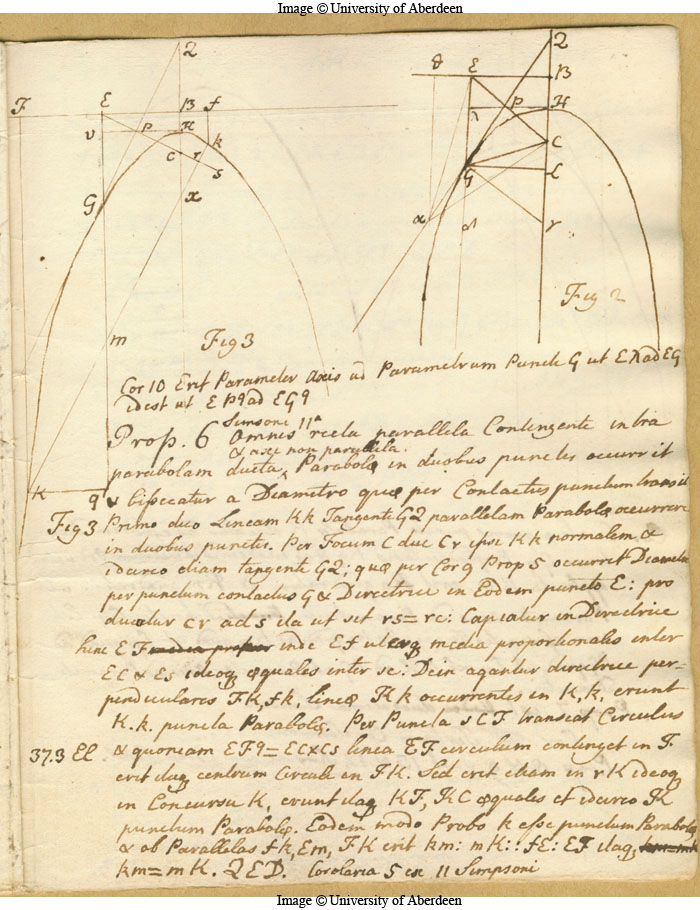 Image © University of Aberdeen
F E B f
υ P H k
C r s
G x
m
K q
Fig 3
Q
θ E B
λ P H
C
G L
α r
Fig 2
Cor 10 Erit Parameter Axis ad Parametrum Puncti G ut Eλ ad EG
idest ut EPq ad EGq
Simsoni 11ª
Prop. 6 Omnis recta parallela Contingente intra
& axi non parallela
parabolam ducta, Parabolæ in duobus punctis occurrit
& bissecatur a Diametro quæ per Contactus punctum transit
Fig 3 Primo duc Lineam Kk Tangenti GQ parallelam Parabolæ occurrere
in duobus punctis. Per Focum C duc Cr ipsi Kk normalem &
idcirco etiam tangenti GQ; quæ per Cor 9 Prop 5 occurret Diametro
per punctum contactus G & Directrice in Eodem puncto E: pro
ducatur Cr ad s ita ut sit rs = rc: Capiatur in Directrice
hinc EF inde Ef uterq media proportionalis inter
EC & Es ideoq æquales inter se: Dein agantur directrice per-
pendiculares FK, fk, lineæ Kk occurrentes in K, k, erunt
K. k. puncta Parabolæ. Per Puncta s C F transeat Circulus
37.3 El & quoniam EFq = EC×Es linea EF circulum continget in F.
erit itaq centrum Circuli in FK. Sed erit etiam in rK ideoq
in Concursu K, erunt itaq KF, KC æquales et idcirco K
punctum Parabolæ. Eodem modo Probo k esse punctum Parabolæ
& ob Parallelas fk, Em, FK erit km: mK:: fE: EF itaq km=mk
km = mK. QED. Corolaria 5 ex 11 Simpsoni
Image © University of Aberdeen